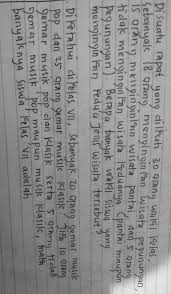 Disuatu rapat yang diikuti 30 orang wakil kelas,
sebanyak 18 orang menginginkan wisata pegunungan,
15 orang menginginkan wisata pantai, dan 5 orang
tidak menginginkan wisata keduanya (pantai maupun
pegunungan). Berapa banyak wakil siswa yang
menginginkan kedua jenis wisata tersebut?
Diketahui dikelas VII sebanyak 20 orang gemar musik
pop dan 25 orang gemar musik klasik. Jika 10 orang
gemar musik pop dan klasik serta 5 orang tidak
gemar musik pop maupun musik klasik, maka
banyaknya siswa kelas VII adalah